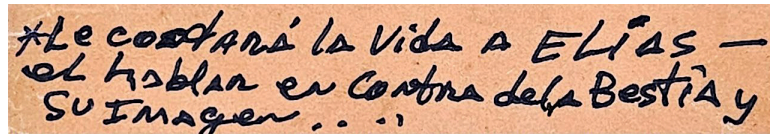 *Le costará la vida a ELÍAS —
el hablar en contra de la Bestia y
SU IMAGEN....